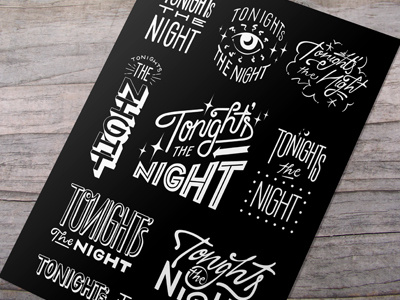 TONIGHTS
THE
NIGHT
TONIGHTS
THE NIGHT
Tonights
the Night
TONIGHTS
THE
NIGHT
Tonight's
THE
NIGHT
TONIGHTS
the
NIGHT
TONIGHT'S
The NIGHT
Tonights
the
NIGHT
TONIGHT'S